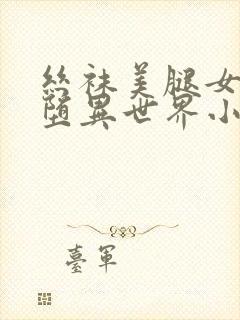 丝袜美腿女
堕异世界小
台军